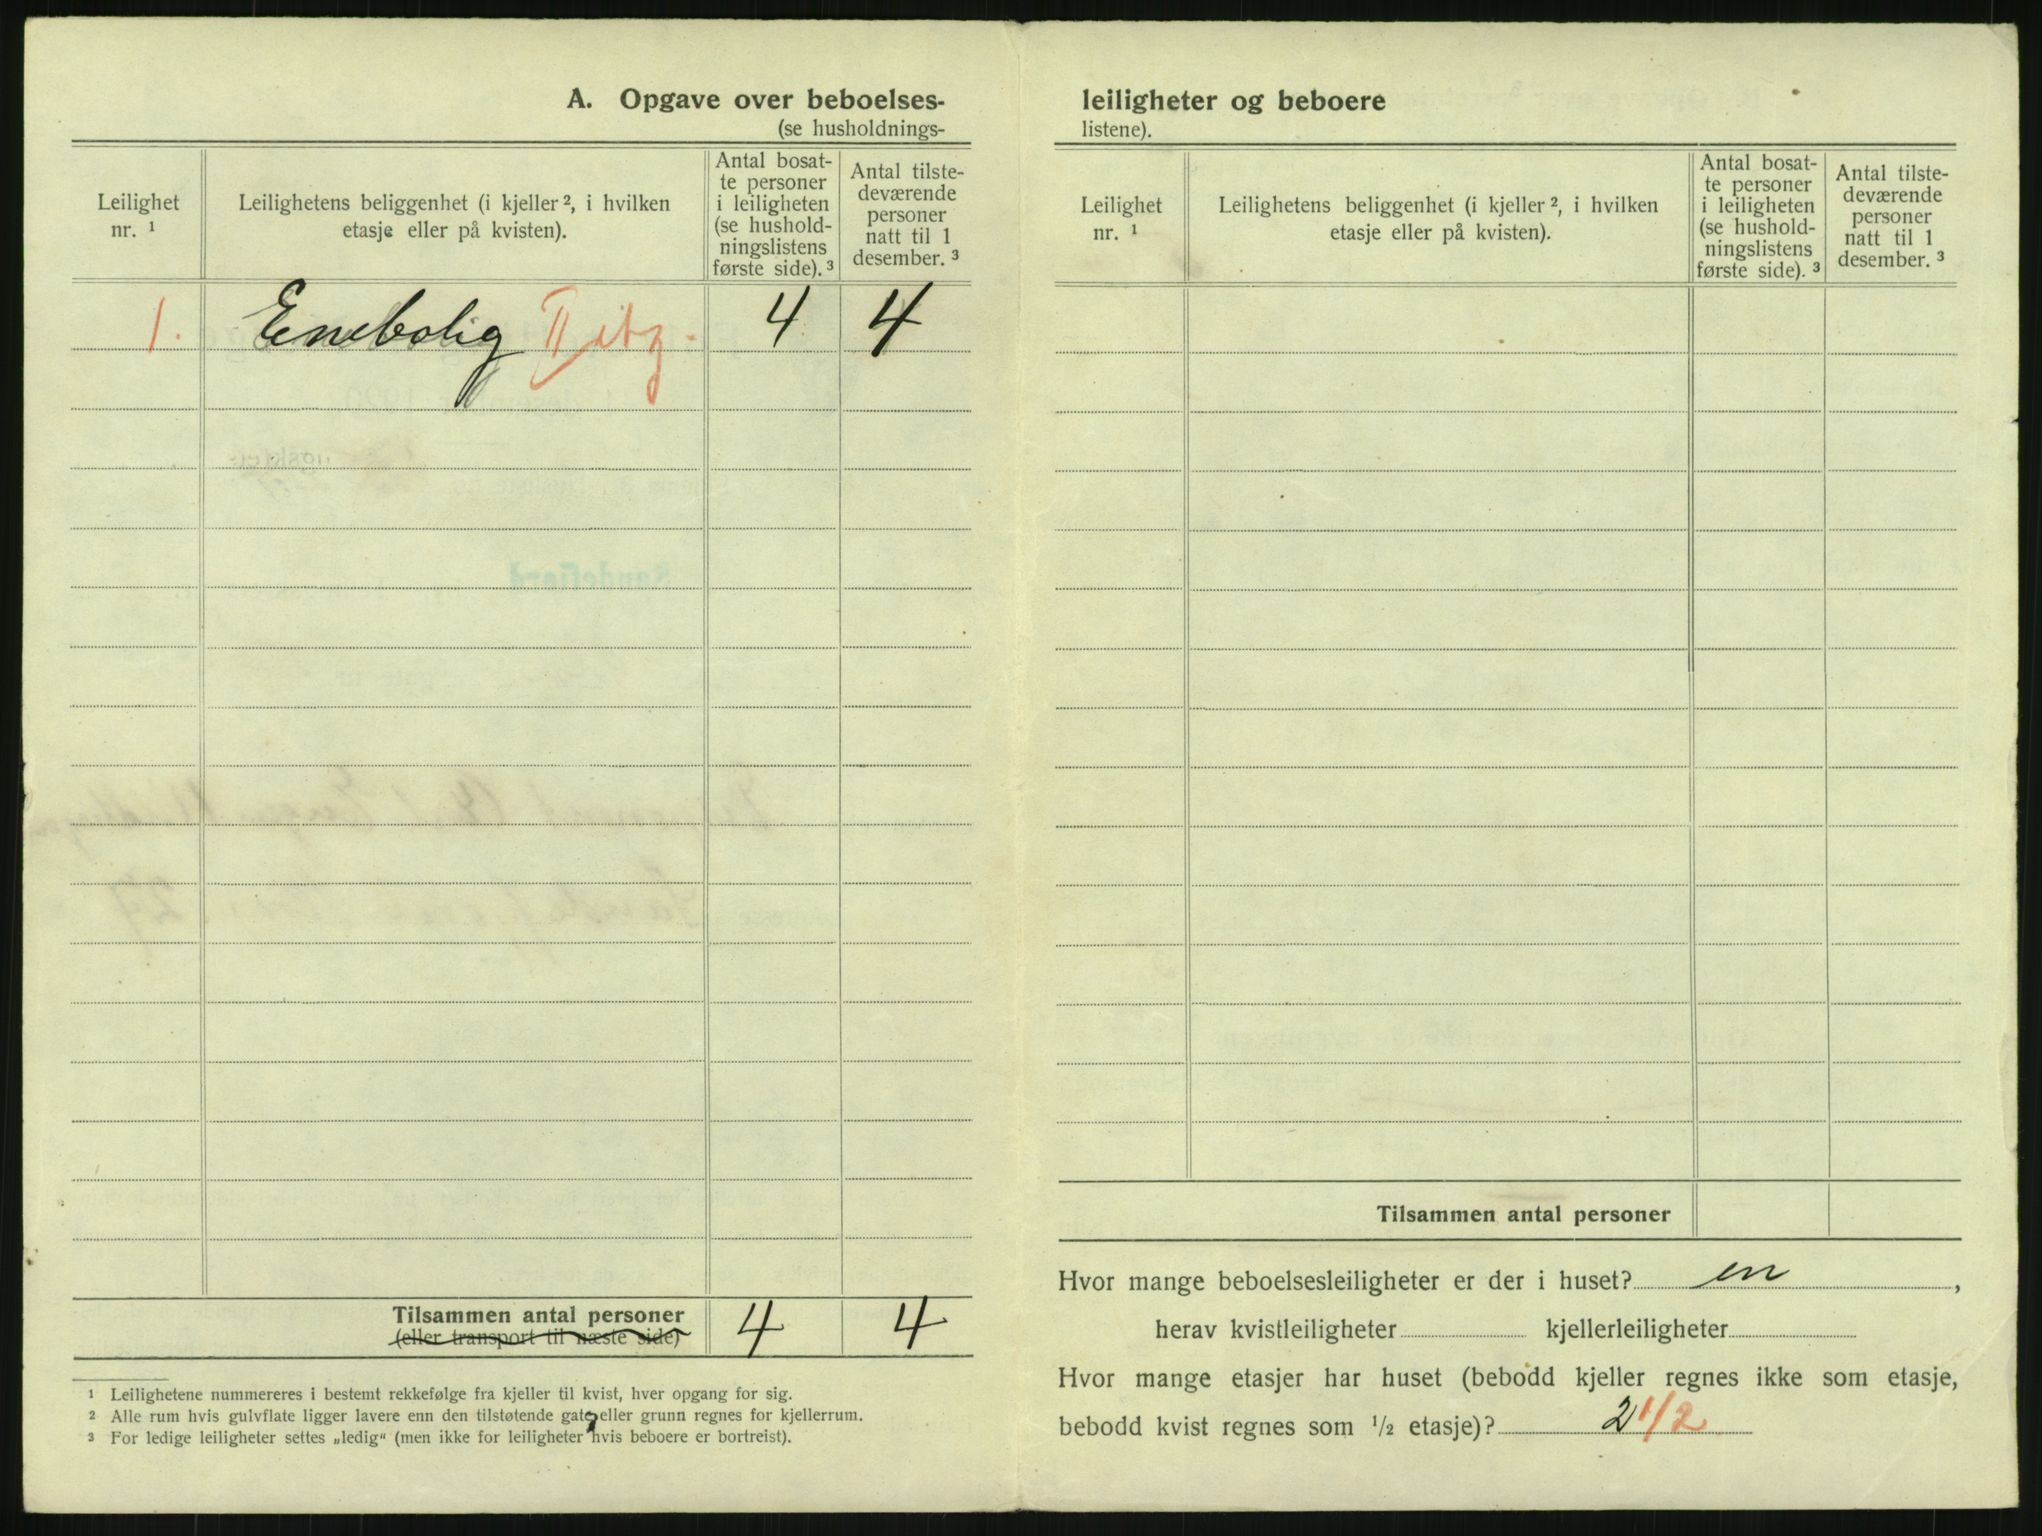 A. Opgave over beboelses-
(se husholdnings-
Leilighet
nr. ¹
Leilighetens beliggenhet (i kjeller ², i hvilken
etasje eller på kvisten).
Antal bosat-
te personer
i leiligheten
(se hushold-
ningslistens
første side). ³
Antal tilste-
deværende
personer
natt til 1
desember. ³
1. Enebolig II etg. 4 4
Tilsammen antal personer 4 4
(eller transport til næste side)
¹ Leilighetene nummereres i bestemt rekkefølge fra kjeller til kvist, hver opgang for sig.
² Alle rum hvis gulvflate ligger lavere enn den tilstøtende gate, eller grunn regnes for kjellerrum.
³ For ledige leiligheter settes „ledig“ (men ikke for leiligheter hvis beboere er bortreist).
leiligheter og beboere
listene).
Leilighet
nr. ¹
Leilighetens beliggenhet (i kjeller ², i hvilken
etasje eller på kvisten).
Antal bosat-
te personer
i leiligheten
(se hushold-
ningslistens
første side). ³
Antal tilste-
deværende
personer
natt til 1
desember. ³
Tilsammen antal personer
Hvor mange beboelsesleiligheter er der i huset? en ,
herav kvistleiligheter kjellerleiligheter
Hvor mange etasjer har huset (bebodd kjeller regnes ikke som etasje,
bebodd kvist regnes som ¹/₂ etasje)? 2 1/2